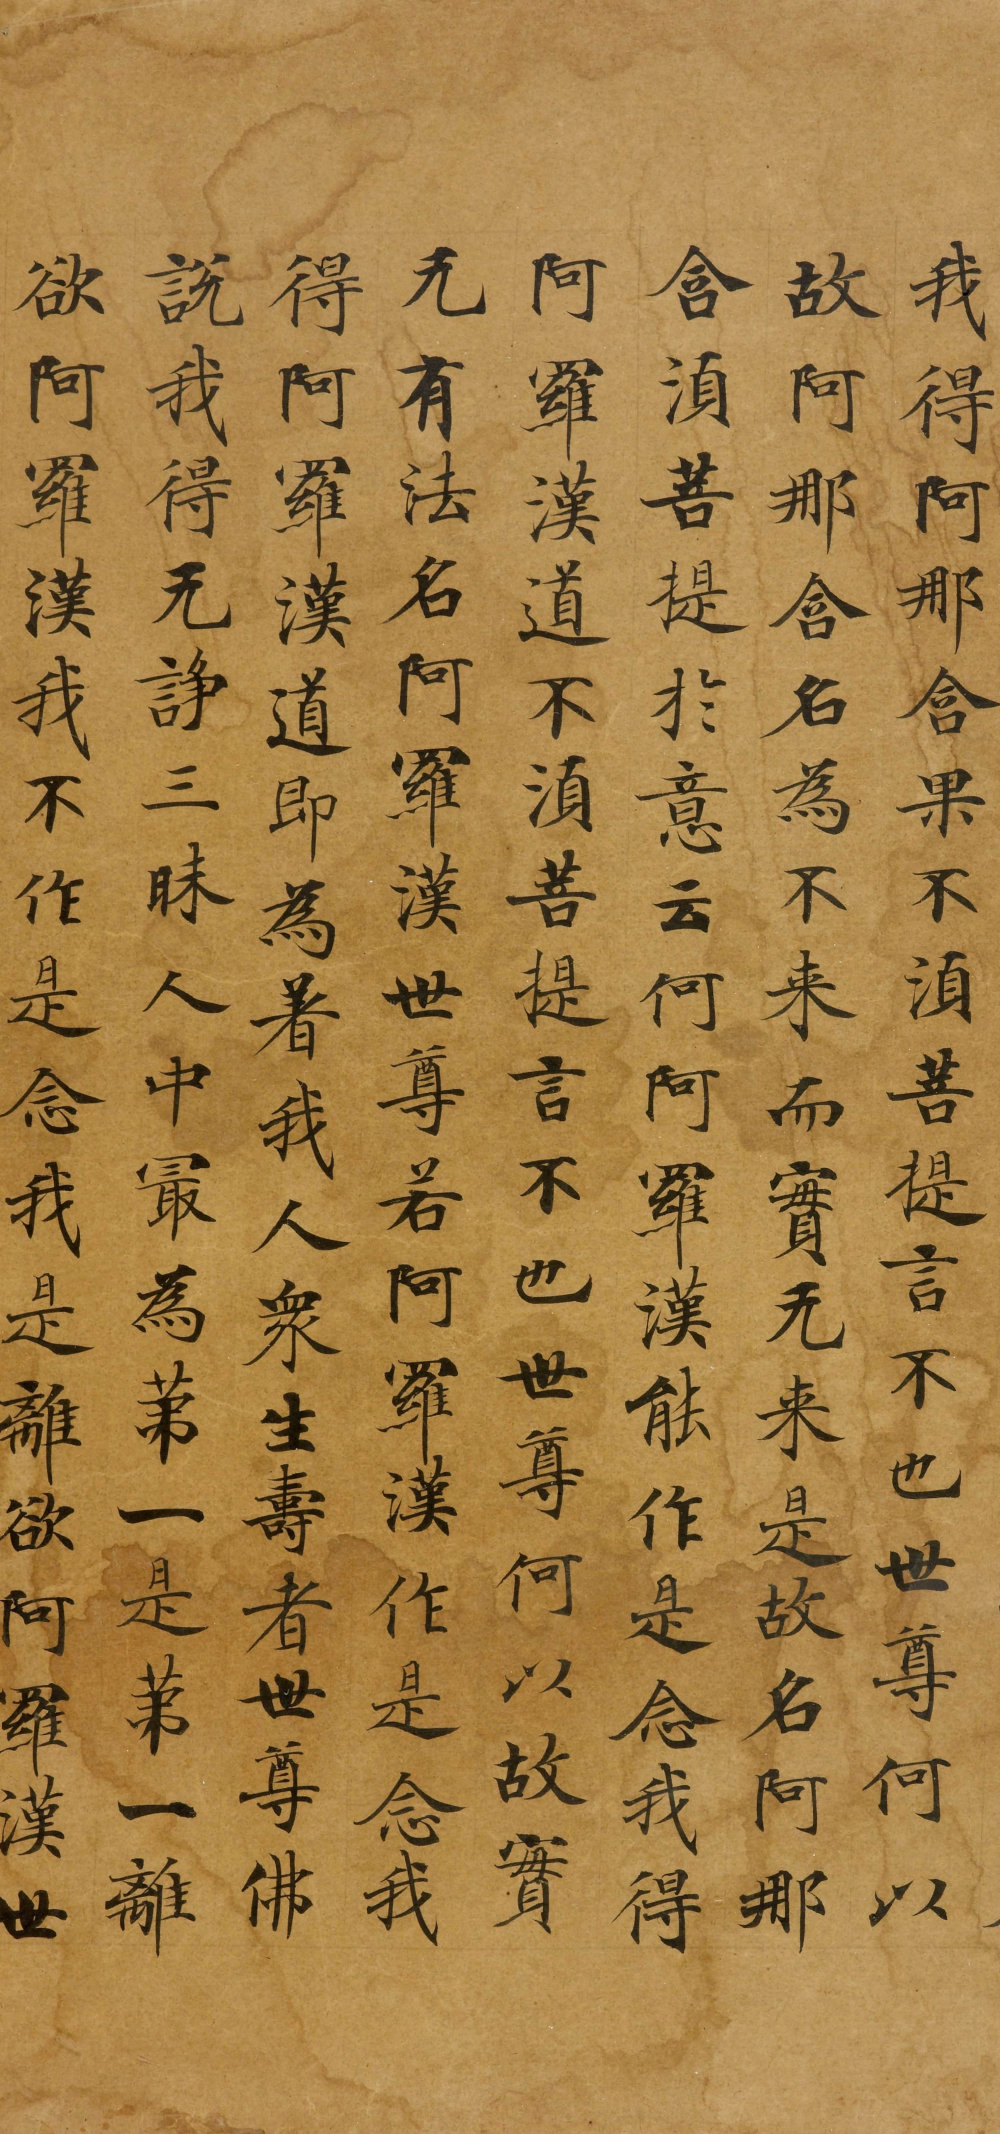 我得阿那含果不湏菩提言不也世尊何以
故阿那含名為不来而實无来是故名阿那
含湏菩提扵意云何阿羅漢能作是念我得
阿羅漢道不湏菩提言不也世尊何以故實
无有法名阿羅漢世尊若阿羅漢作是念我
得阿羅漢道即為著我人衆生壽者世尊佛
說我得无諍三昧人中㝡為苐一是苐一離
欲阿羅漢我不作是念我是離欲阿羅漢世